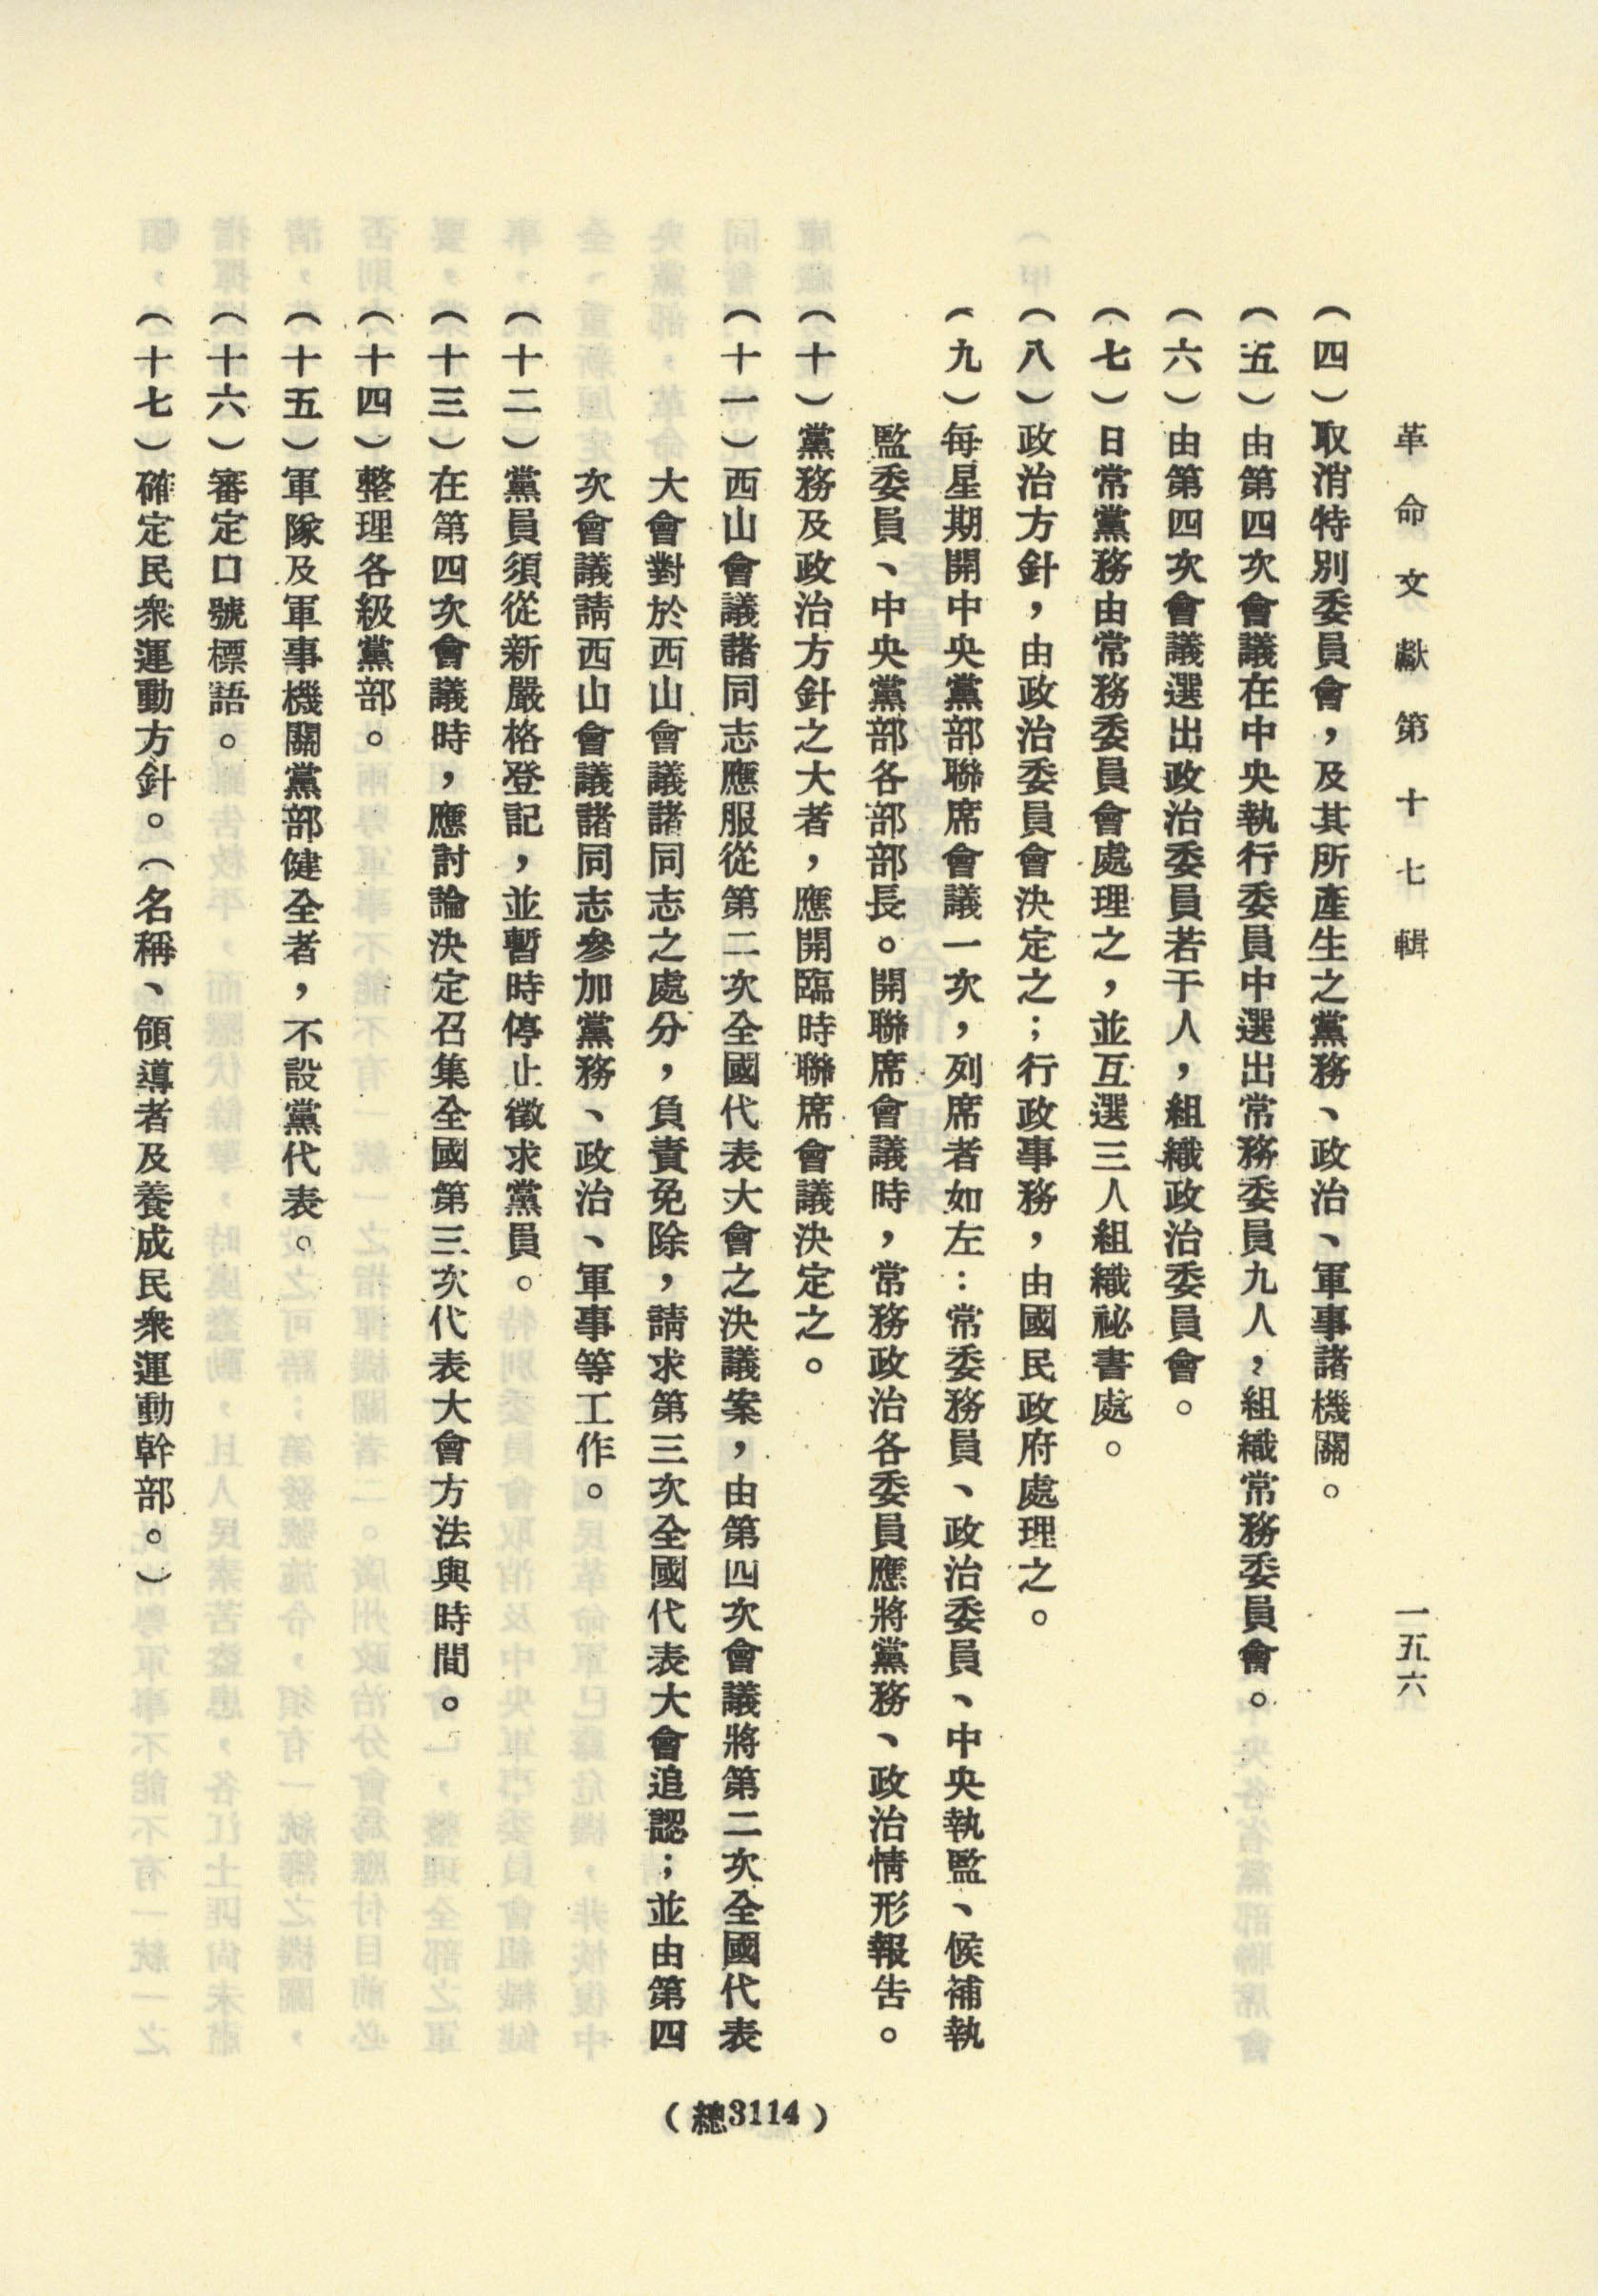 革命文獻第十七輯
一五六
（四）取消特別委員會，及其所產生之黨務、政治、軍事諸機關。
（五）由第四次會議在中央執行委員中選出常務委員九人，組織常務委員會。
（六）由第四次會議選出政治委員若干人，組織政治委員會。
（七）日常黨務由常務委員會處理之，並互選三人組織祕書處。
（八）政治方針，由政治委員會決定之；行政事務，由國民政府處理之。
（九）每星期開中央黨部聯席會議一次，列席者如左：常委務員、政治委員、中央執監、候補執
監委員、中央黨部各部部長。開聯席會議時，常務政治各委員應將黨務、政治情形報告。
（十）黨務及政治方針之大者，應開臨時聯席會議決定之。
（十一）西山會議諸同志應服從第二次全國代表大會之決議案，由第四次會議將第二次全國代表
大會對於西山會議諸同志之處分，負責免除，請求第三次全國代表大會追認；並由第四
次會議請西山會議諸同志參加黨務、政治、軍事等工作。
（十二）黨員須從新嚴格登記，並暫時停止徵求黨員。
（十三）在第四次會議時，應討論決定召集全國第三次代表大會方法與時間。
（十四）整理各級黨部。
（十五）軍隊及軍事機關黨部健全者，不設黨代表。
（十六）審定口號標語。
（十七）確定民衆運動方針。（名稱、領導者及養成民衆運動幹部。）
（總3114）